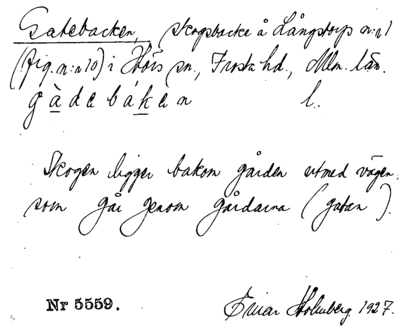 Gatebacken, skogsbacke å Långstorps n:r 1
(fig. n:r 10) i Hörs sn., Frosta hd., Mlm. län.
gàdebákɛn l.
Skogen ligger bakom gården utmed vägen
som går genom gårdarna (gatan).
Nr 5559. Einar Holmberg 1927.